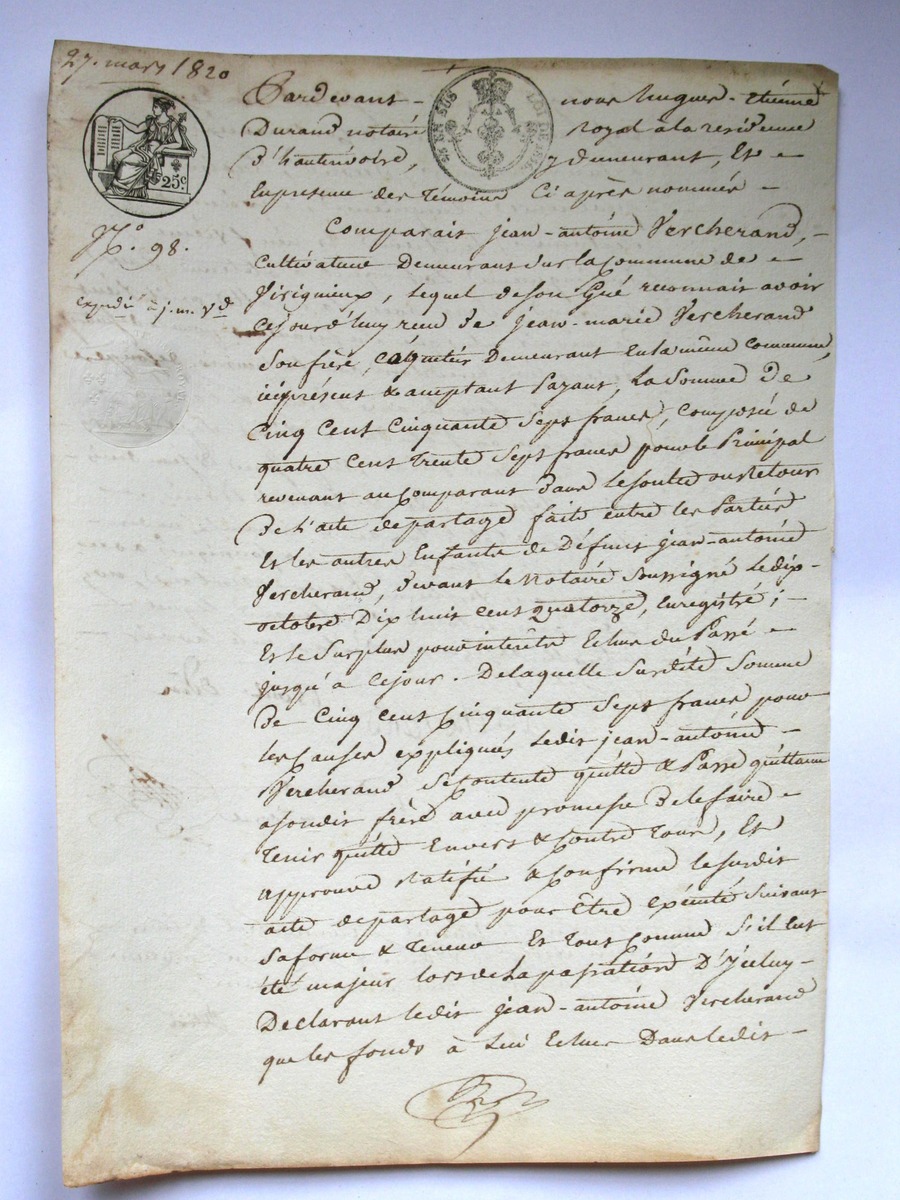 27. mars 1820
25c
¼ EN SUS LOI DE 1816
N.º 98.
expédié à j. m. Vd
Pardevant - nous hugues-étienne
Durand notaire royal a la residence
d'hauterivoire, y demeurant, Et -
En presence des témoins Ci après nommés -
Comparait jean-antoine Vercherand, -
Cultivateur Demeurant Sur la Commune de -
Virignieux, lequel de Son Gré reconnait avoir
Cejourd'huy recu de jean-marie Vercherand
Son frère, Demeurant En la même Commune,
icy présent & acceptant Payant, La Somme De
Cinq Cent Cinquante Sept francs, Composée de
quatre Cent Trente Sept francs pour le Principal
revenant au Comparant Dans le Soulte ou Retour
De l'acte de partage faite entre les Parties
Et les autres Enfants de Défunt jean-antoine
Vercherand, devant le Notaire Soussigné le dix-
octobre Dix huit cent quatorze, Enregistré; -
Et le Surplus pour intérêts Echus du Passé -
jusqu'à Cejour. De laquelle Surdite Somme
De Cinq Cent Cinquante Sept francs pour
les Causes expliqués ledit jean-antoine -
Vercherand Se Contente quitte & Passe quittance
a Sondit frère avec promesse De le faire -
Tenir quitte Envers & Contre Tous, Et
approuve Ratifie & Confirme le Susdit
acte de partage pour Être exécuté Suivant
Sa forme & Teneur Et Tout Comme S'il Eut
été majeur lors de La passation D'Yceluy -
Declarant ledit jean-antoine Vercherand
que les fonds à Lui Echus Dans ledit -